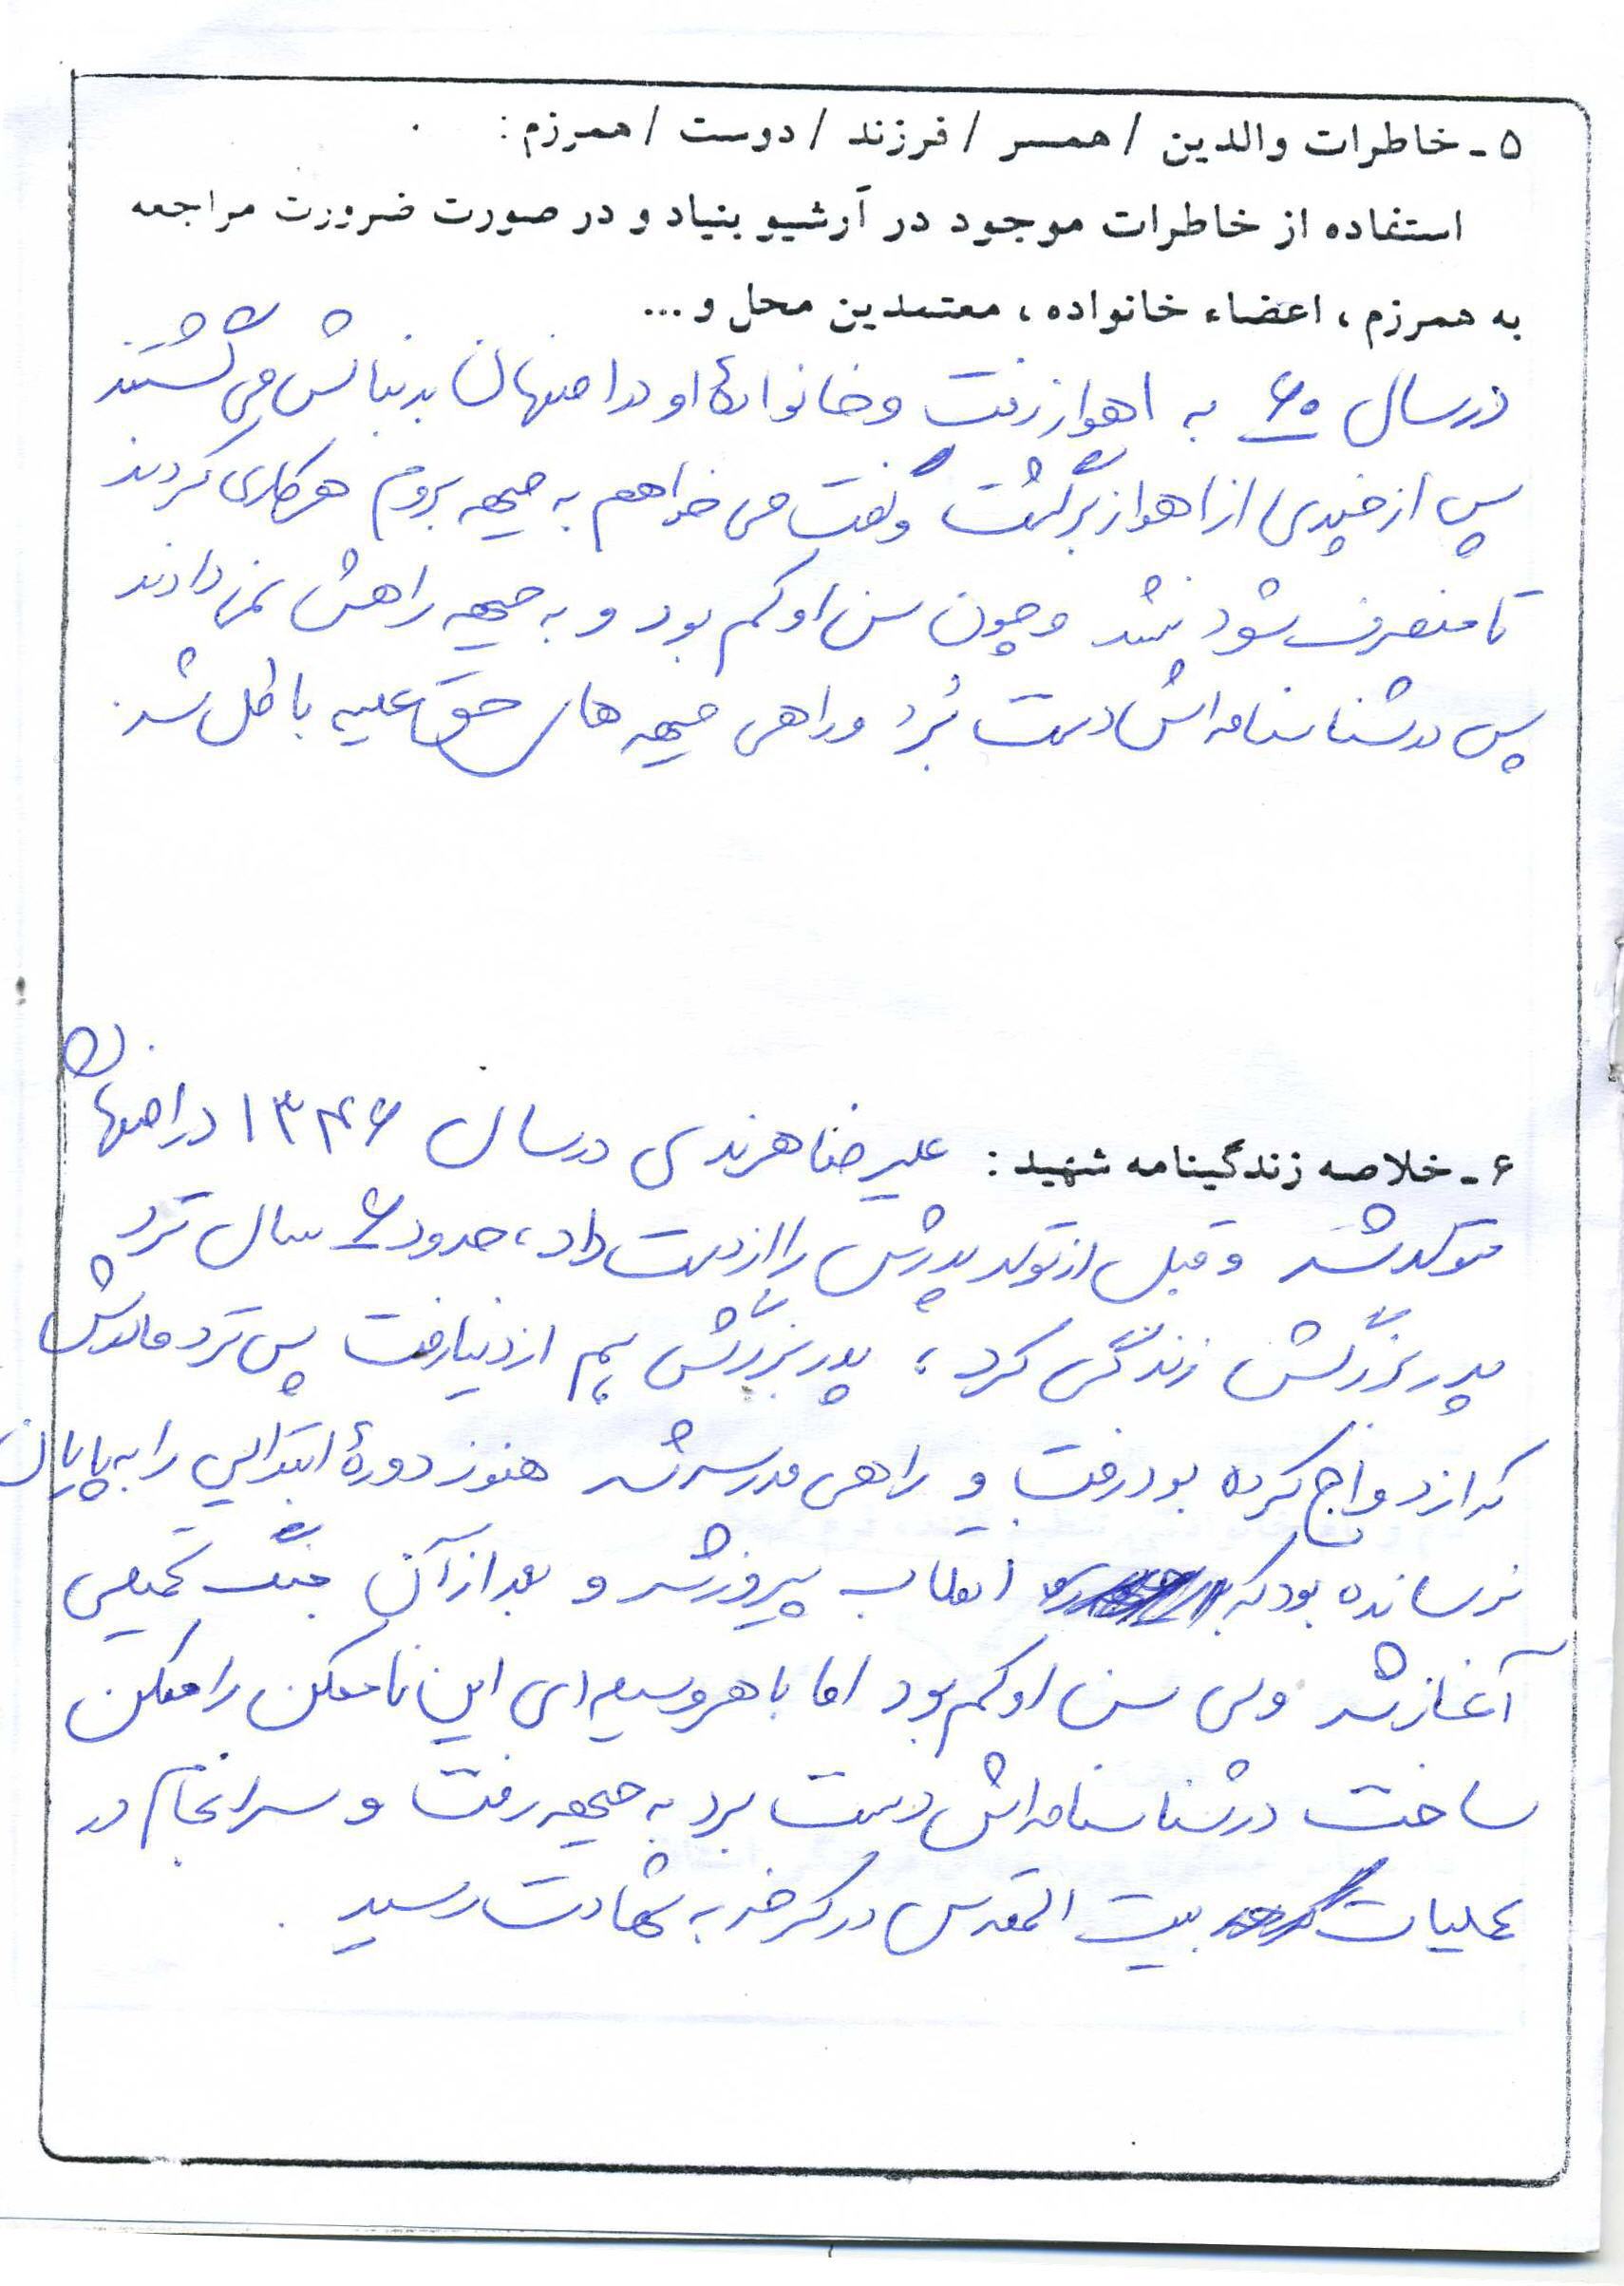 ۵ - خاطرات والدین / همسر / فرزند / دوست / همرزم :
استفاده از خاطرات موجود در آرشیو بنیاد و در صورت ضرورت مراجعه
به همرزم ، اعضاء خانواده ، معتمدین محل و ...
در سال ۶۰ به اهواز رفت و خانوادهٔ او در اصفهان بدنبالش می گشتند
پس از چندی از اهواز برگشت و گفت می خواهم به جبهه بروم هر کاری کردند
تا منصرف شود نشد و چون سن او کم بود و به جبهه راهش نمی دادند
پس در شناسنامه اش دست بُرد و راهی جبهه های حق علیه باطل شد.
۶ - خلاصه زندگینامه شهید : علیرضا هرندی در سال ۱۳۴۶ در اصفهان
متولد شد و قبل از تولد پدرش را از دست داد، حدود ۶ سال نزد
پدر بزرگش زندگی کرد، پدر بزرگش هم از دنیا رفت پس نزد مادرش
که ازدواج کرده بود رفت و راهی مدرسه شد هنوز دورهٔ ابتدایی را به پایان
نرسانده بود که انقلاب پیروز شد و بعد از آن جنگ تحمیلی
آغاز شد ولی سن او کم بود اما با هر وسیله ای این ناممکن را ممکن
ساخت در شناسنامه اش دست برد به جبهه رفت و سرانجام در
عملیات بیت المقدس در کرخه به شهادت رسید.